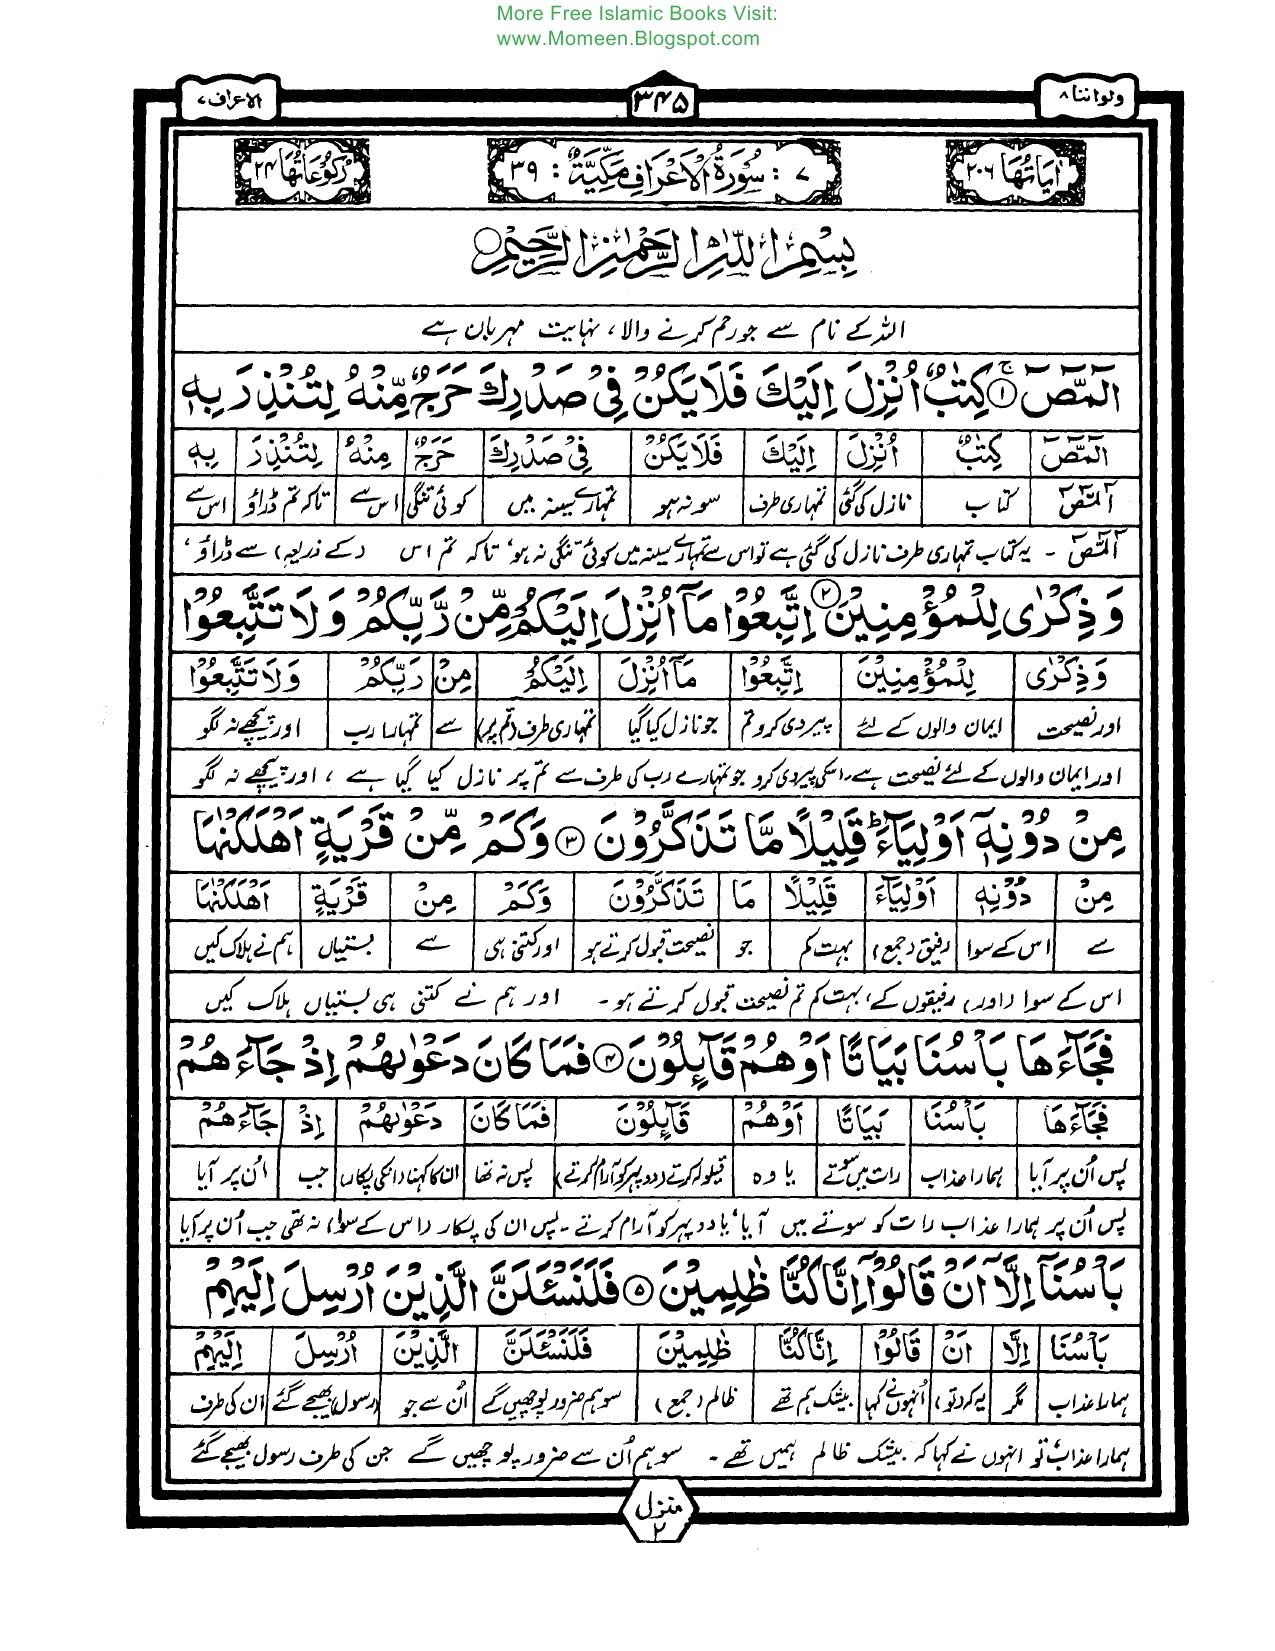 More Free Islamic Books Visit:
www.Momeen.Blogspot.com
ولواننا ۸
۳۴۵
الاعراف ۷
اٰیَاتُهَا ۲۰۶
۷ : سُوْرَةُ الْاَعْرَافِ مَکِّیَّةٌ : ۳۹
رُکُوْعَاتُهَا ۲۴
بِسْمِ اللّٰهِ الرَّحْمٰنِ الرَّحِیْمِ
اللہ کے نام سے جو رحم کرنے والا، نہایت مہربان ہے
الٓمّٓصٓ ۚ۝۱ كِتٰبٌ اُنْزِلَ اِلَیْكَ فَلَا یَكُنْ فِیْ صَدْرِكَ حَرَجٌ مِّنْهُ لِتُنْذِرَ بِهٖ
الٓمّٓصٓ كِتٰبٌ اُنْزِلَ اِلَیْكَ فَلَا یَكُنْ فِیْ صَدْرِكَ حَرَجٌ مِنْهُ لِتُنْذِرَ بِهٖ
الٓمّٓصٓ کتاب نازل کی گئی تمہاری طرف سو نہ ہو تمہارے سینہ میں کوئی تنگی اس سے تاکہ تم ڈراؤ اس سے
الٓمّٓصٓ - یہ کتاب تمہاری طرف نازل کی گئی ہے تو اس سے تمہارے سینہ میں کوئی تنگی نہ ہو، تاکہ تم اس (کے ذریعہ) سے ڈراؤ،
وَذِكْرٰی لِلْمُؤْمِنِیْنَ ۝۲ اِتَّبِعُوْا مَاۤ اُنْزِلَ اِلَیْكُمْ مِّنْ رَّبِّكُمْ وَلَا تَتَّبِعُوْا
وَذِكْرٰی لِلْمُؤْمِنِیْنَ اِتَّبِعُوْا مَاۤ اُنْزِلَ اِلَیْكُمْ مِنْ رَبِّكُمْ وَلَا تَتَّبِعُوْا
اور نصیحت ایمان والوں کے لئے پیروی کرو تم جو نازل کیا گیا تمہاری طرف (تم پر) سے تمہارا رب اور پیچھے نہ لگو
اور ایمان والوں کے لئے نصیحت ہے، اسکی پیروی کرو جو تمہارے رب کی طرف سے تم پر نازل کیا گیا ہے، اور پیچھے نہ لگو
مِنْ دُوْنِهٖۤ اَوْلِیَآءَ ؕ قَلِیْلًا مَّا تَذَكَّرُوْنَ ۝۳ وَكَمْ مِّنْ قَرْیَةٍ اَهْلَكْنٰهَا
مِنْ دُوْنِهٖ اَوْلِیَآءَ قَلِیْلًا مَا تَذَكَّرُوْنَ وَكَمْ مِنْ قَرْیَةٍ اَهْلَكْنٰهَا
سے اس کے سوا رفیق (جمع) بہت کم جو نصیحت قبول کرتے ہو اور کتنی ہی سے بستیاں ہم نے ہلاک کیں
اس کے سوا (اور) رفیقوں کے، بہت کم تم نصیحت قبول کرتے ہو - اور ہم نے کتنی ہی بستیاں ہلاک کیں
فَجَآءَهَا بَاْسُنَا بَیَاتًا اَوْ هُمْ قَآئِلُوْنَ ۝۴ فَمَا كَانَ دَعْوٰىهُمْ اِذْ جَآءَهُمْ
فَجَآءَهَا بَاْسُنَا بَیَاتًا اَوْهُمْ قَآئِلُوْنَ فَمَا كَانَ دَعْوٰىهُمْ اِذْ جَآءَهُمْ
پس اُن پر آیا ہمارا عذاب رات میں سوتے یا وہ قیلولہ کرتے (دوپہر کو آرام کرتے) پس نہ تھا ان کا کہنا (انکی پکار) جب اُن پر آیا
پس اُن پر ہمارا عذاب رات کو سوتے میں آیا، یا دوپہر کو آرام کرتے - پس ان کی پکار (اس کے سوا) نہ تھی جب اُن پر آیا
بَاْسُنَاۤ اِلَّاۤ اَنْ قَالُوْۤا اِنَّا كُنَّا ظٰلِمِیْنَ ۝۵ فَلَنَسْـَٔلَنَّ الَّذِیْنَ اُرْسِلَ اِلَیْهِمْ
بَاْسُنَا اِلَّا اَنْ قَالُوْا اِنَّا كُنَّا ظٰلِمِیْنَ فَلَنَسْـَٔلَنَّ الَّذِیْنَ اُرْسِلَ اِلَیْهِمْ
ہمارا عذاب مگر یہ کہ (تو) اُنہوں نے کہا بیشک ہم تھے ظالم (جمع) سو ہم ضرور پوچھیں گے اُن سے جو (رسول) بھیجے گئے ان کی طرف
ہمارا عذاب تو انہوں نے کہا کہ بیشک ظالم ہمیں تھے - سو ہم اُن سے ضرور پوچھیں گے جن کی طرف رسول بھیجے گئے
منزل ۲